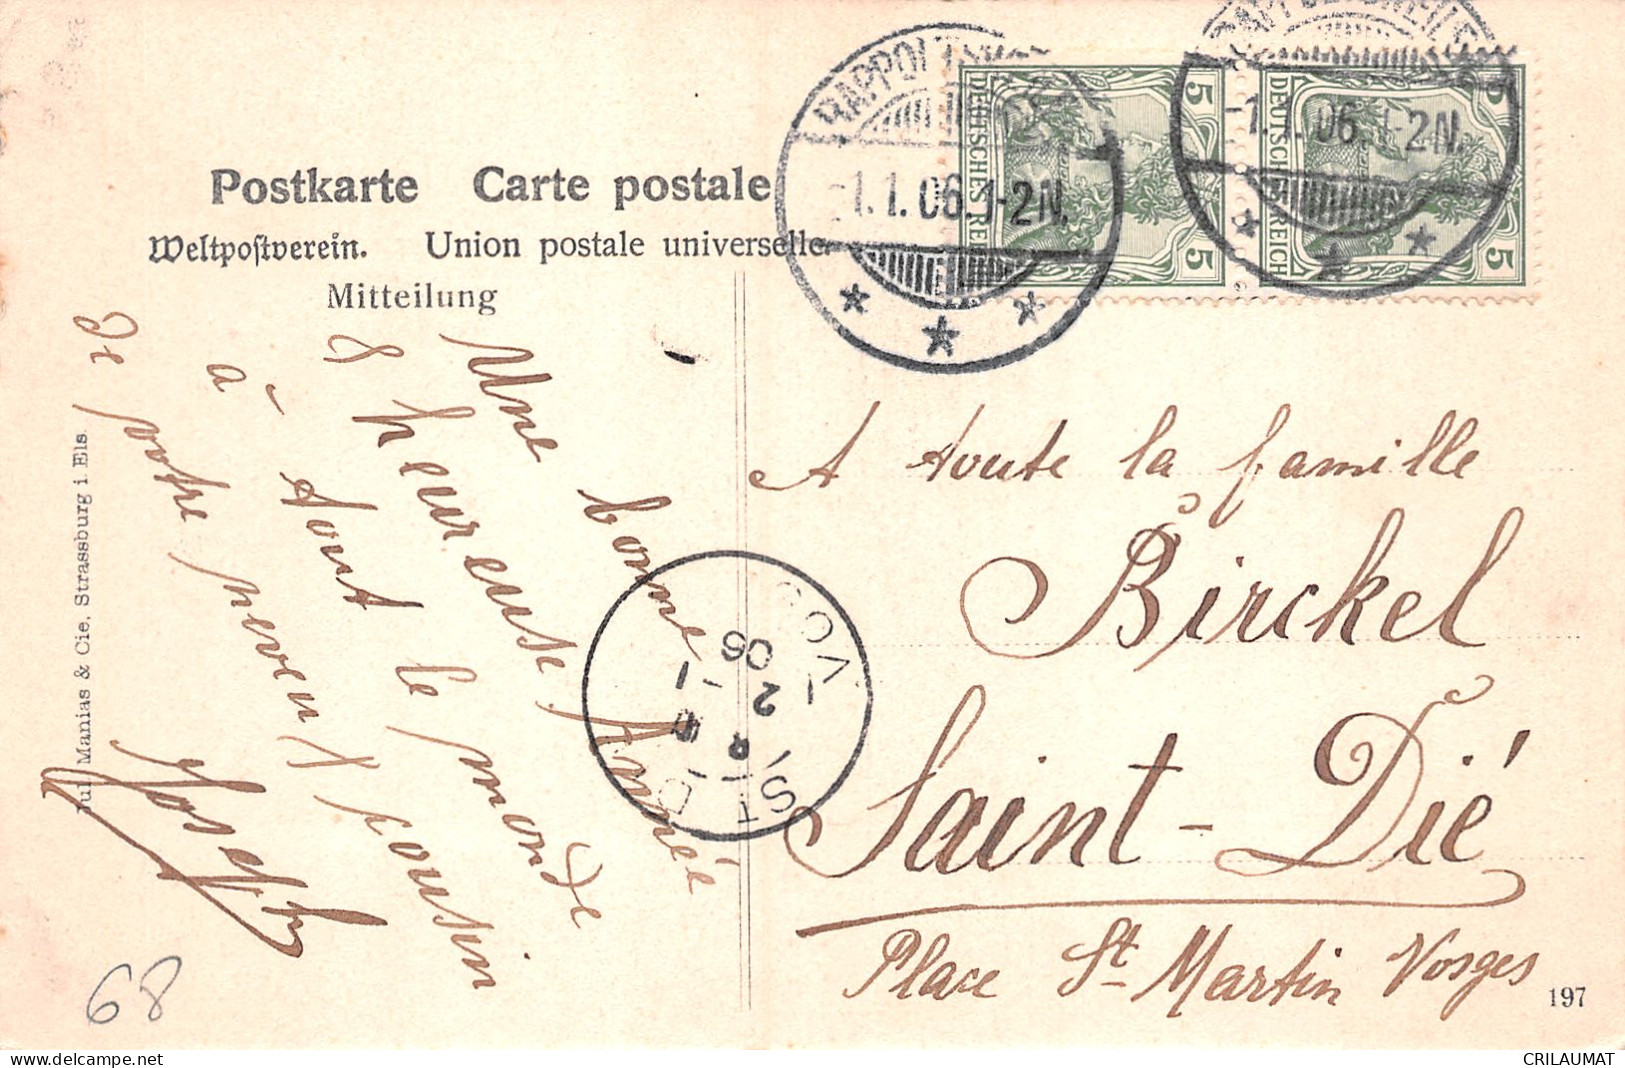 Postkarte Carte postale
Weltpostverein. Union postale universelle
Mitteilung
Une bonne Année
& heureuse
à tout le monde
de votre neveu & cousin
Joseph
Jul. Manias & Cie, Strassburg i. Els.
68
RAPPOLTSW
1.1.06.1-2N.
DEUTSCHES REICH
5
5
RAPPOLTSWEILER
-1.1.06.1-2N.
DEUTSCHES REICH
5
5
ST D
2 1
06
VOS
A toute la famille
Birckel
Saint-Dié
Place St Martin Vosges
197
CRILAUMAT